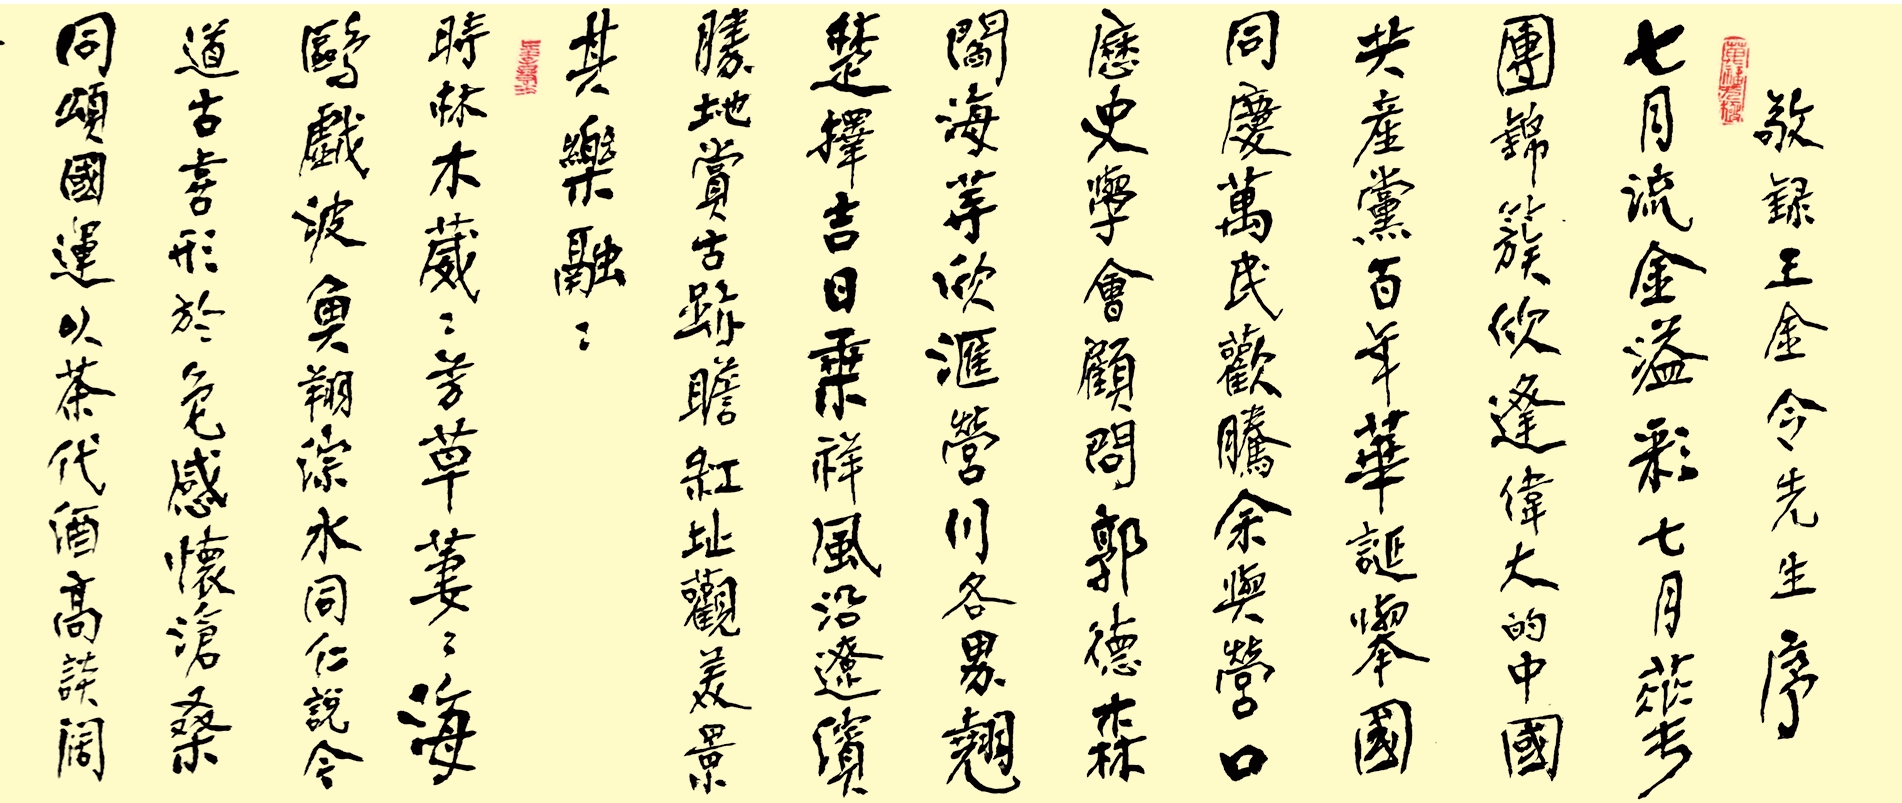 敬録王金令先生序
七月流金溢彩七月蒞步
團錦簇欣逢偉大的中國
共産黨百年華誕舉國
同慶萬民歡騰余與營口
歷史學會顧問郭德森
閻海等欣滙營川各界翹
楚擇吉日乗祥風沿遼濱
勝地賞古跡瞻紅址觀美景
其樂融〻
時林木葳〻芳草萋〻海
鷗戲波魚翔淙水同仁說今
道古喜形於色感懷滄桑
同頌國運以茶代酒高談闊